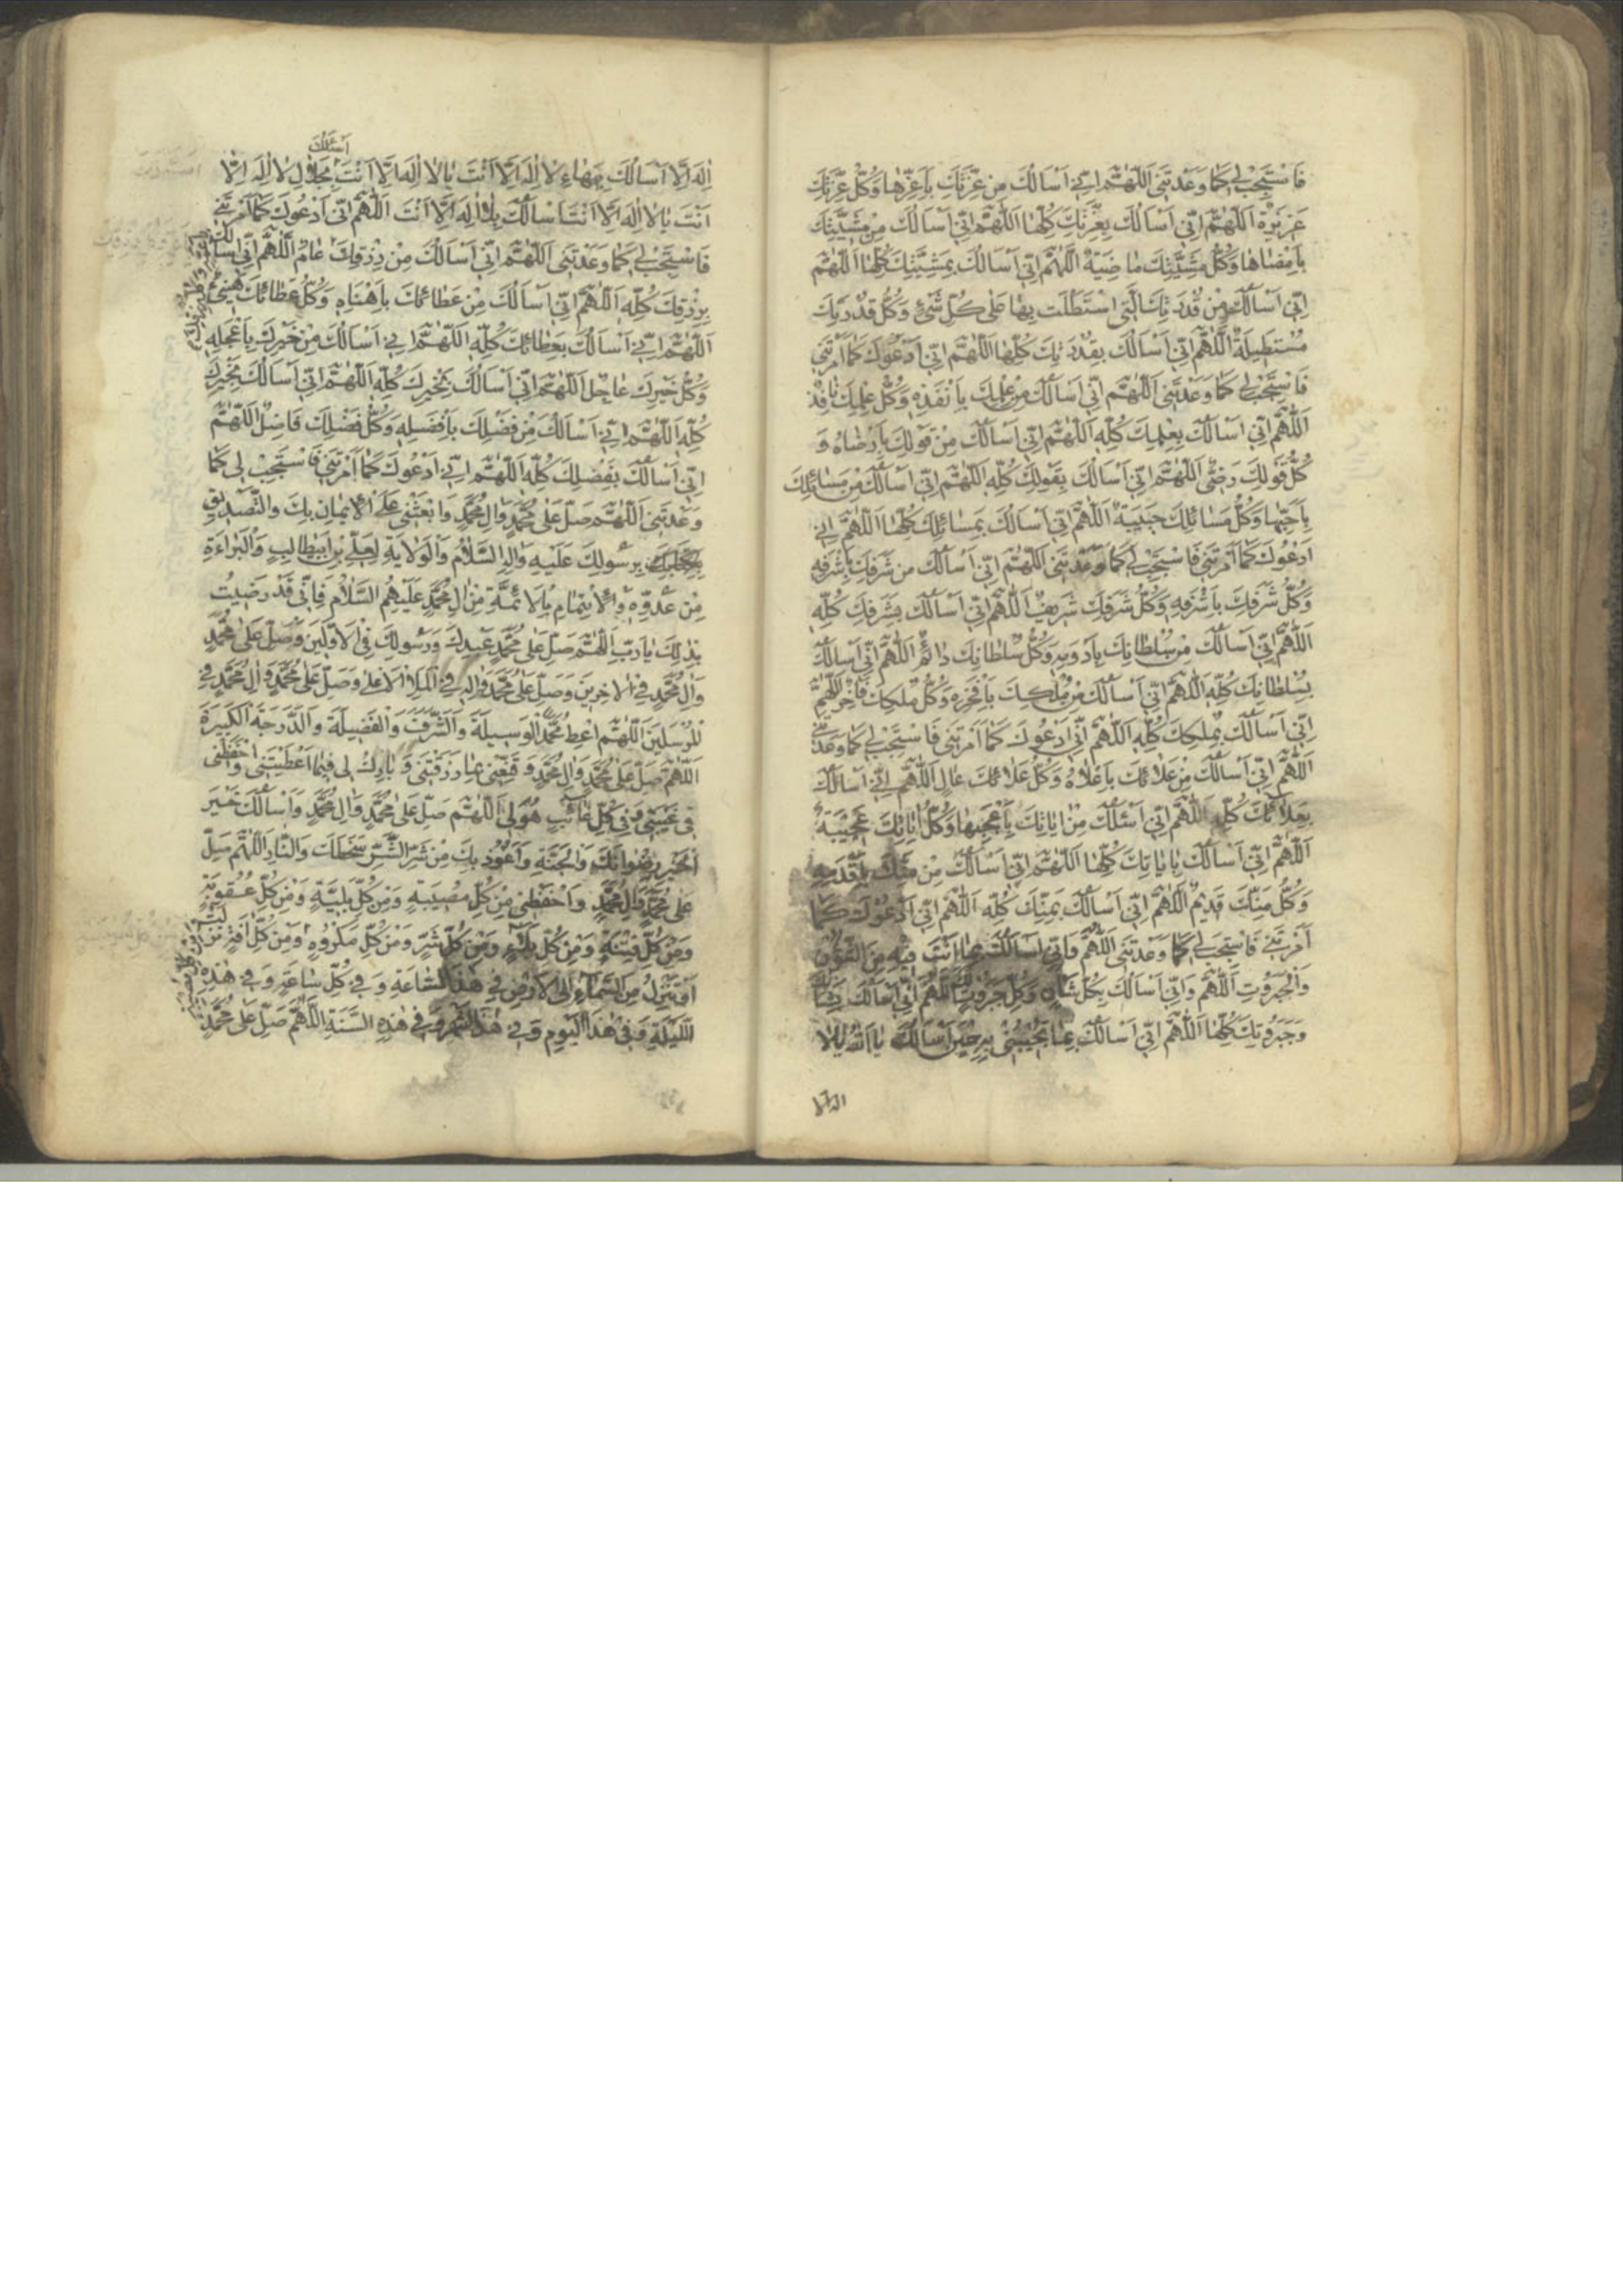 فَاسْتَجِبْ لِي كَمَا وَعَدْتَنِي اَللّٰهُمَّ اِنِّي اَسْاَلُكَ مِنْ عِزَّتِكَ بِاَعَزِّهَا وَكُلُّ عِزَّتِكَ
عَزِيزَةٌ اَللّٰهُمَّ اِنِّي اَسْاَلُكَ بِعِزَّتِكَ كُلِّهَا اَللّٰهُمَّ اِنِّي اَسْاَلُكَ مِنْ مَشِيَّتِكَ
بِاَمْضَاهَا وَكُلُّ مَشِيَّتِكَ مَاضِيَةٌ اَللّٰهُمَّ اِنِّي اَسْاَلُكَ بِمَشِيَّتِكَ كُلِّهَا اَللّٰهُمَّ
اِنِّي اَسْاَلُكَ مِنْ قُدْرَتِكَ الَّتِي اسْتَطَلْتَ بِهَا عَلٰى كُلِّ شَيْءٍ وَكُلُّ قُدْرَتِكَ
مُسْتَطِيلَةٌ اَللّٰهُمَّ اِنِّي اَسْاَلُكَ بِقُدْرَتِكَ كُلِّهَا اَللّٰهُمَّ اِنِّي اَدْعُوكَ كَمَا اَمَرْتَنِي
فَاسْتَجِبْ لِي كَمَا وَعَدْتَنِي اَللّٰهُمَّ اِنِّي اَسْاَلُكَ مِنْ عِلْمِكَ بِاَنْفَذِهِ وَكُلُّ عِلْمِكَ نَافِذٌ
اَللّٰهُمَّ اِنِّي اَسْاَلُكَ بِعِلْمِكَ كُلِّهِ اَللّٰهُمَّ اِنِّي اَسْاَلُكَ مِنْ قَوْلِكَ بِاَرْضَاهُ وَ
كُلُّ قَوْلِكَ رَضِيٌّ اَللّٰهُمَّ اِنِّي اَسْاَلُكَ بِقَوْلِكَ كُلِّهِ اَللّٰهُمَّ اِنِّي اَسْاَلُكَ مِنْ مَسَائِلِكَ
بِاَحَبِّهَا وَكُلُّ مَسَائِلِكَ حَبِيبَةٌ اَللّٰهُمَّ اِنِّي اَسْاَلُكَ بِمَسَائِلِكَ كُلِّهَا اَللّٰهُمَّ اِنِّي
اَدْعُوكَ كَمَا اَمَرْتَنِي فَاسْتَجِبْ لِي كَمَا وَعَدْتَنِي اَللّٰهُمَّ اِنِّي اَسْاَلُكَ مِنْ شَرَفِكَ بِاَشْرَفِهِ
وَكُلُّ شَرَفِكَ بِاَشْرَفِهِ وَكُلُّ شَرَفِكَ شَرِيفٌ اَللّٰهُمَّ اِنِّي اَسْاَلُكَ بِشَرَفِكَ كُلِّهِ
اَللّٰهُمَّ اِنِّي اَسْاَلُكَ مِنْ سُلْطَانِكَ بِاَدْوَمِهِ وَكُلُّ سُلْطَانِكَ دَائِمٌ اَللّٰهُمَّ اِنِّي اَسْاَلُكَ
بِسُلْطَانِكَ كُلِّهِ اَللّٰهُمَّ اِنِّي اَسْاَلُكَ مِنْ مُلْكِكَ بِاَفْخَرِهِ وَكُلُّ مُلْكِكَ فَاخِرٌ اَللّٰهُمَّ
اِنِّي اَسْاَلُكَ بِمُلْكِكَ كُلِّهِ اَللّٰهُمَّ اِنِّي اَدْعُوكَ كَمَا اَمَرْتَنِي فَاسْتَجِبْ لِي كَمَا وَعَدْتَنِي
اَللّٰهُمَّ اِنِّي اَسْاَلُكَ مِنْ عَلَائِكَ بِاَعْلَاهُ وَكُلُّ عَلَائِكَ عَالٍ اَللّٰهُمَّ اِنِّي اَسْاَلُكَ
بِعَلَائِكَ كُلِّهِ اَللّٰهُمَّ اِنِّي اَسْئَلُكَ مِنْ اٰيَاتِكَ بِاَعْجَبِهَا وَكُلُّ اٰيَاتِكَ عَجِيبَةٌ
اَللّٰهُمَّ اِنِّي اَسْاَلُكَ بِاٰيَاتِكَ كُلِّهَا اَللّٰهُمَّ اِنِّي اَسْاَلُكَ مِنْ مَنِّكَ بِاَقْدَمِهِ
وَكُلُّ مَنِّكَ قَدِيمٌ اَللّٰهُمَّ اِنِّي اَسْاَلُكَ بِمَنِّكَ كُلِّهِ اَللّٰهُمَّ اِنِّي اَدْعُوكَ كَمَا
اَمَرْتَنِي فَاسْتَجِبْ لِي كَمَا وَعَدْتَنِي اَللّٰهُمَّ وَاِنِّي اَسْاَلُكَ بِمَا اَنْتَ فِيهِ مِنَ
وَالْجَبَرُوتِ اَللّٰهُمَّ وَاِنِّي اَسْاَلُكَ بِكُلِّ شَأْنٍ وَكُلِّ جَبَرُوتٍ اَللّٰهُمَّ اِنِّي اَسْاَلُكَ
وَجَبَرُوتِكَ كُلِّهَا اَللّٰهُمَّ اِنِّي اَسْاَلُكَ بِمَا تُجِيبُنِي بِهِ حِينَ اَسْاَلُكَ يَا اَللّٰهُ يَا لَا
اله الا
اَسْئَلُكَ
اِلٰهَ اِلَّا اَسْاَلُكَ بِبَهَاءِ لَا اِلٰهَ اِلَّا اَنْتَ يَا لَا اِلٰهَ اِلَّا اَنْتَ بِجَلَالِ لَا اِلٰهَ اِلَّا
اَنْتَ يَا لَا اِلٰهَ اِلَّا اَنْتَ اَسْاَلُكَ بِلَا اِلٰهَ اِلَّا اَنْتَ اَللّٰهُمَّ اِنِّي اَدْعُوكَ كَمَا اَمَرْتَنِي
فَاسْتَجِبْ لِي كَمَا وَعَدْتَنِي اَللّٰهُمَّ اِنِّي اَسْاَلُكَ مِنْ رِزْقِكَ عَامٌّ اَللّٰهُمَّ اِنِّي اَسْاَلُكَ
بِرِزْقِكَ كُلِّهِ اَللّٰهُمَّ اِنِّي اَسْاَلُكَ مِنْ عَطَائِكَ بِاَهْنَاهِ وَكُلُّ عَطَائِكَ هَنِيءٌ
اَللّٰهُمَّ اِنِّي اَسْاَلُكَ بِعَطَائِكَ كُلِّهِ اَللّٰهُمَّ اِنِّي اَسْاَلُكَ مِنْ خَيْرِكَ بِاَعْجَلِهِ
وَكُلُّ خَيْرِكَ عَاجِلٌ اَللّٰهُمَّ اِنِّي اَسْاَلُكَ بِخَيْرِكَ كُلِّهِ اَللّٰهُمَّ اِنِّي اَسْاَلُكَ بِخَيْرِكَ
كُلِّهِ اَللّٰهُمَّ اِنِّي اَسْاَلُكَ مِنْ فَضْلِكَ بِاَفْضَلِهِ وَكُلُّ فَضْلِكَ فَاضِلٌ اَللّٰهُمَّ
اِنِّي اَسْاَلُكَ بِفَضْلِكَ كُلِّهِ اَللّٰهُمَّ اِنِّي اَدْعُوكَ كَمَا اَمَرْتَنِي فَاسْتَجِبْ لِي كَمَا
وَعَدْتَنِي اَللّٰهُمَّ صَلِّ عَلٰى مُحَمَّدٍ وَاٰلِ مُحَمَّدٍ وَابْعَثْنِي عَلَى الْاِيْمَانِ بِكَ وَالتَّصْدِيقِ
بِرَسُولِكَ عَلَيْهِ وَاٰلِهِ السَّلَامُ وَالْوَلَايَةِ لِعَلِيِّ بْنِ اَبِيطَالِبٍ وَالْبَرَاءَةِ
مِنْ عَدُوِّهِ وَالْاِيْتِمَامِ بِالْاَئِمَّةِ مِنْ اٰلِ مُحَمَّدٍ عَلَيْهِمُ السَّلَامُ فَاِنِّي قَدْ رَضِيتُ
بِذٰلِكَ يَا رَبِّ اَللّٰهُمَّ صَلِّ عَلٰى مُحَمَّدٍ عَبْدِكَ وَرَسُولِكَ فِي الْاَوَّلِينَ وَصَلِّ عَلٰى مُحَمَّدٍ
وَاٰلِ مُحَمَّدٍ فِي الْاٰخِرِينَ وَصَلِّ عَلٰى مُحَمَّدٍ وَاٰلِهِ فِي الْمَلَاِ الْاَعْلٰى وَصَلِّ عَلٰى مُحَمَّدٍ وَاٰلِ مُحَمَّدٍ فِي
الْمُرْسَلِينَ اَللّٰهُمَّ اعْطِ مُحَمَّدًا الْوَسِيلَةَ وَالشَّرَفَ وَالْفَضِيلَةَ وَالدَّرَجَةَ الْكَبِيرَةَ
اَللّٰهُمَّ صَلِّ عَلٰى مُحَمَّدٍ وَاٰلِ مُحَمَّدٍ وَقَنِّعْنِي بِمَا رَزَقْتَنِي وَبَارِكْ لِي فِيمَا اَعْطَيْتَنِي وَاحْفَظْنِي
فِي غَيْبَتِي وَفِي كُلِّ غَائِبٍ هُوَ لِي اَللّٰهُمَّ صَلِّ عَلٰى مُحَمَّدٍ وَاٰلِ مُحَمَّدٍ وَاَسْاَلُكَ خَيْرَ
الْخَيْرِ رِضْوَانَكَ وَالْجَنَّةِ وَاَعُوذُ بِكَ مِنْ شَرِّ الشَّرِّ سَخَطِكَ وَالنَّارِ اَللّٰهُمَّ صَلِّ
عَلٰى مُحَمَّدٍ وَاٰلِ مُحَمَّدٍ وَاحْفَظْنِي مِنْ كُلِّ مُصِيبَةٍ وَمِنْ كُلِّ بَلِيَّةٍ وَمِنْ كُلِّ عُقُوبَةٍ
وَمِنْ كُلِّ فِتْنَةٍ وَمِنْ كُلِّ بَلَاءٍ وَمِنْ كُلِّ شَرٍّ وَمِنْ كُلِّ مَكْرُوهٍ وَمِنْ كُلِّ اٰفَةٍ نَزَلَتْ
اَوْ تَنْزِلُ مِنَ السَّمَاءِ اِلَى الْاَرْضِ فِي هٰذِهِ السَّاعَةِ وَفِي كُلِّ سَاعَةٍ وَفِي هٰذِهِ
اللَّيْلَةِ وَفِي هٰذَا الْيَوْمِ وَفِي هٰذَا الشَّهْرِ وَفِي هٰذِهِ السَّنَةِ اَللّٰهُمَّ صَلِّ عَلٰى مُحَمَّدٍ